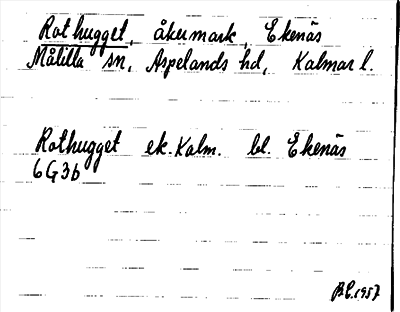 Rothugget, åkermark, Ekenäs
Målilla sn, Aspelands hd, Kalmar l.
Rothugget ek.Kalm. bl. Ekenäs
6G3b
B.E.1957